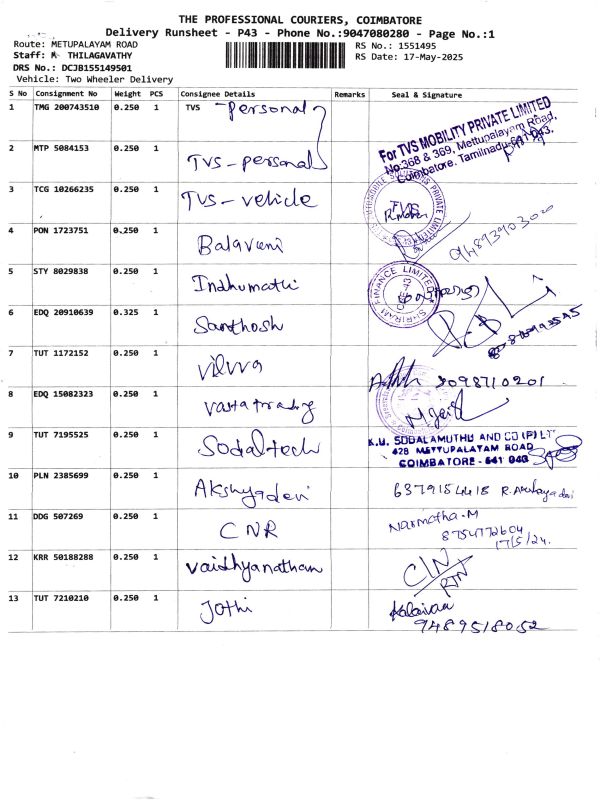 THE PROFESSIONAL COURIERS, COIMBATORE
Delivery Runsheet - P43 - Phone No.:9047080280 - Page No.:1
Route: METUPALAYAM ROAD
RS No.: 1551495
Staff: THILAGAVATHY
RS Date: 17-May-2025
DRS No.: DCJB155149501
Vehicle: Two Wheeler Delivery
S No Consignment No Weight PCS Consignee Details Remarks Seal & Signature
1 TMG 200743510 0.250 1 TVS -Personal
For TVS MOBILITY PRIVATE LIMITED
No:368 & 369, Mettupalayam Road,
Coimbatore. Tamilnadu-641 043.
2 MTP 5084153 0.250 1 TVS-personal
3 TCG 10266235 0.250 1 TVS-vehicle
TVS
4 PON 1723751 0.250 1 Balaveni
5 STY 8029838 0.250 1 Indhumathi
SHRIRAM FINANCE LIMITED
6 EDQ 20910639 0.325 1 Santhosh
7 TUT 1172152 0.250 1
8 EDQ 15082323 0.250 1
9 TUT 7195525 0.250 1 Sodaltech
K.U. SODALAMUTHU AND CO (P) LT
428 METTUPALAYAM ROAD
COIMBATORE - 641 043
10 PLN 2385699 0.250 1 Akshyadevi
11 DDG 507269 0.250 1 CNR Narmatha.M
8754772604
17/5/24.
12 KRR 50188288 0.250 1 Vaidhyanathan
RTN
13 TUT 7210210 0.250 1 Jothi
9489518052